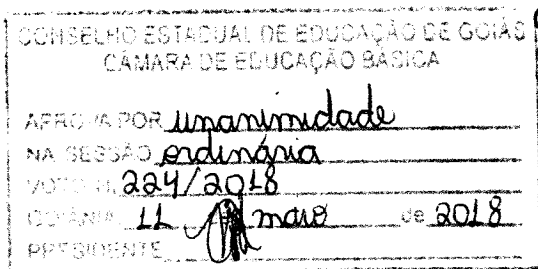 CONSELHO ESTADUAL DE EDUCAÇÃO DE GOIÁS
CÂMARA DE EDUCAÇÃO BÁSICA
APROVA POR unanimidade
NA SESSÃO ordinária
VOTO N. 224/2018
GOIÂNIA, 11 maio de 2018
PRESIDENTE